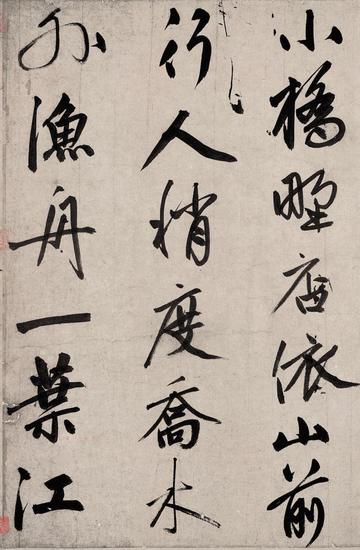 小橋野店依山前
行人稍度喬木
外漁舟一葉江